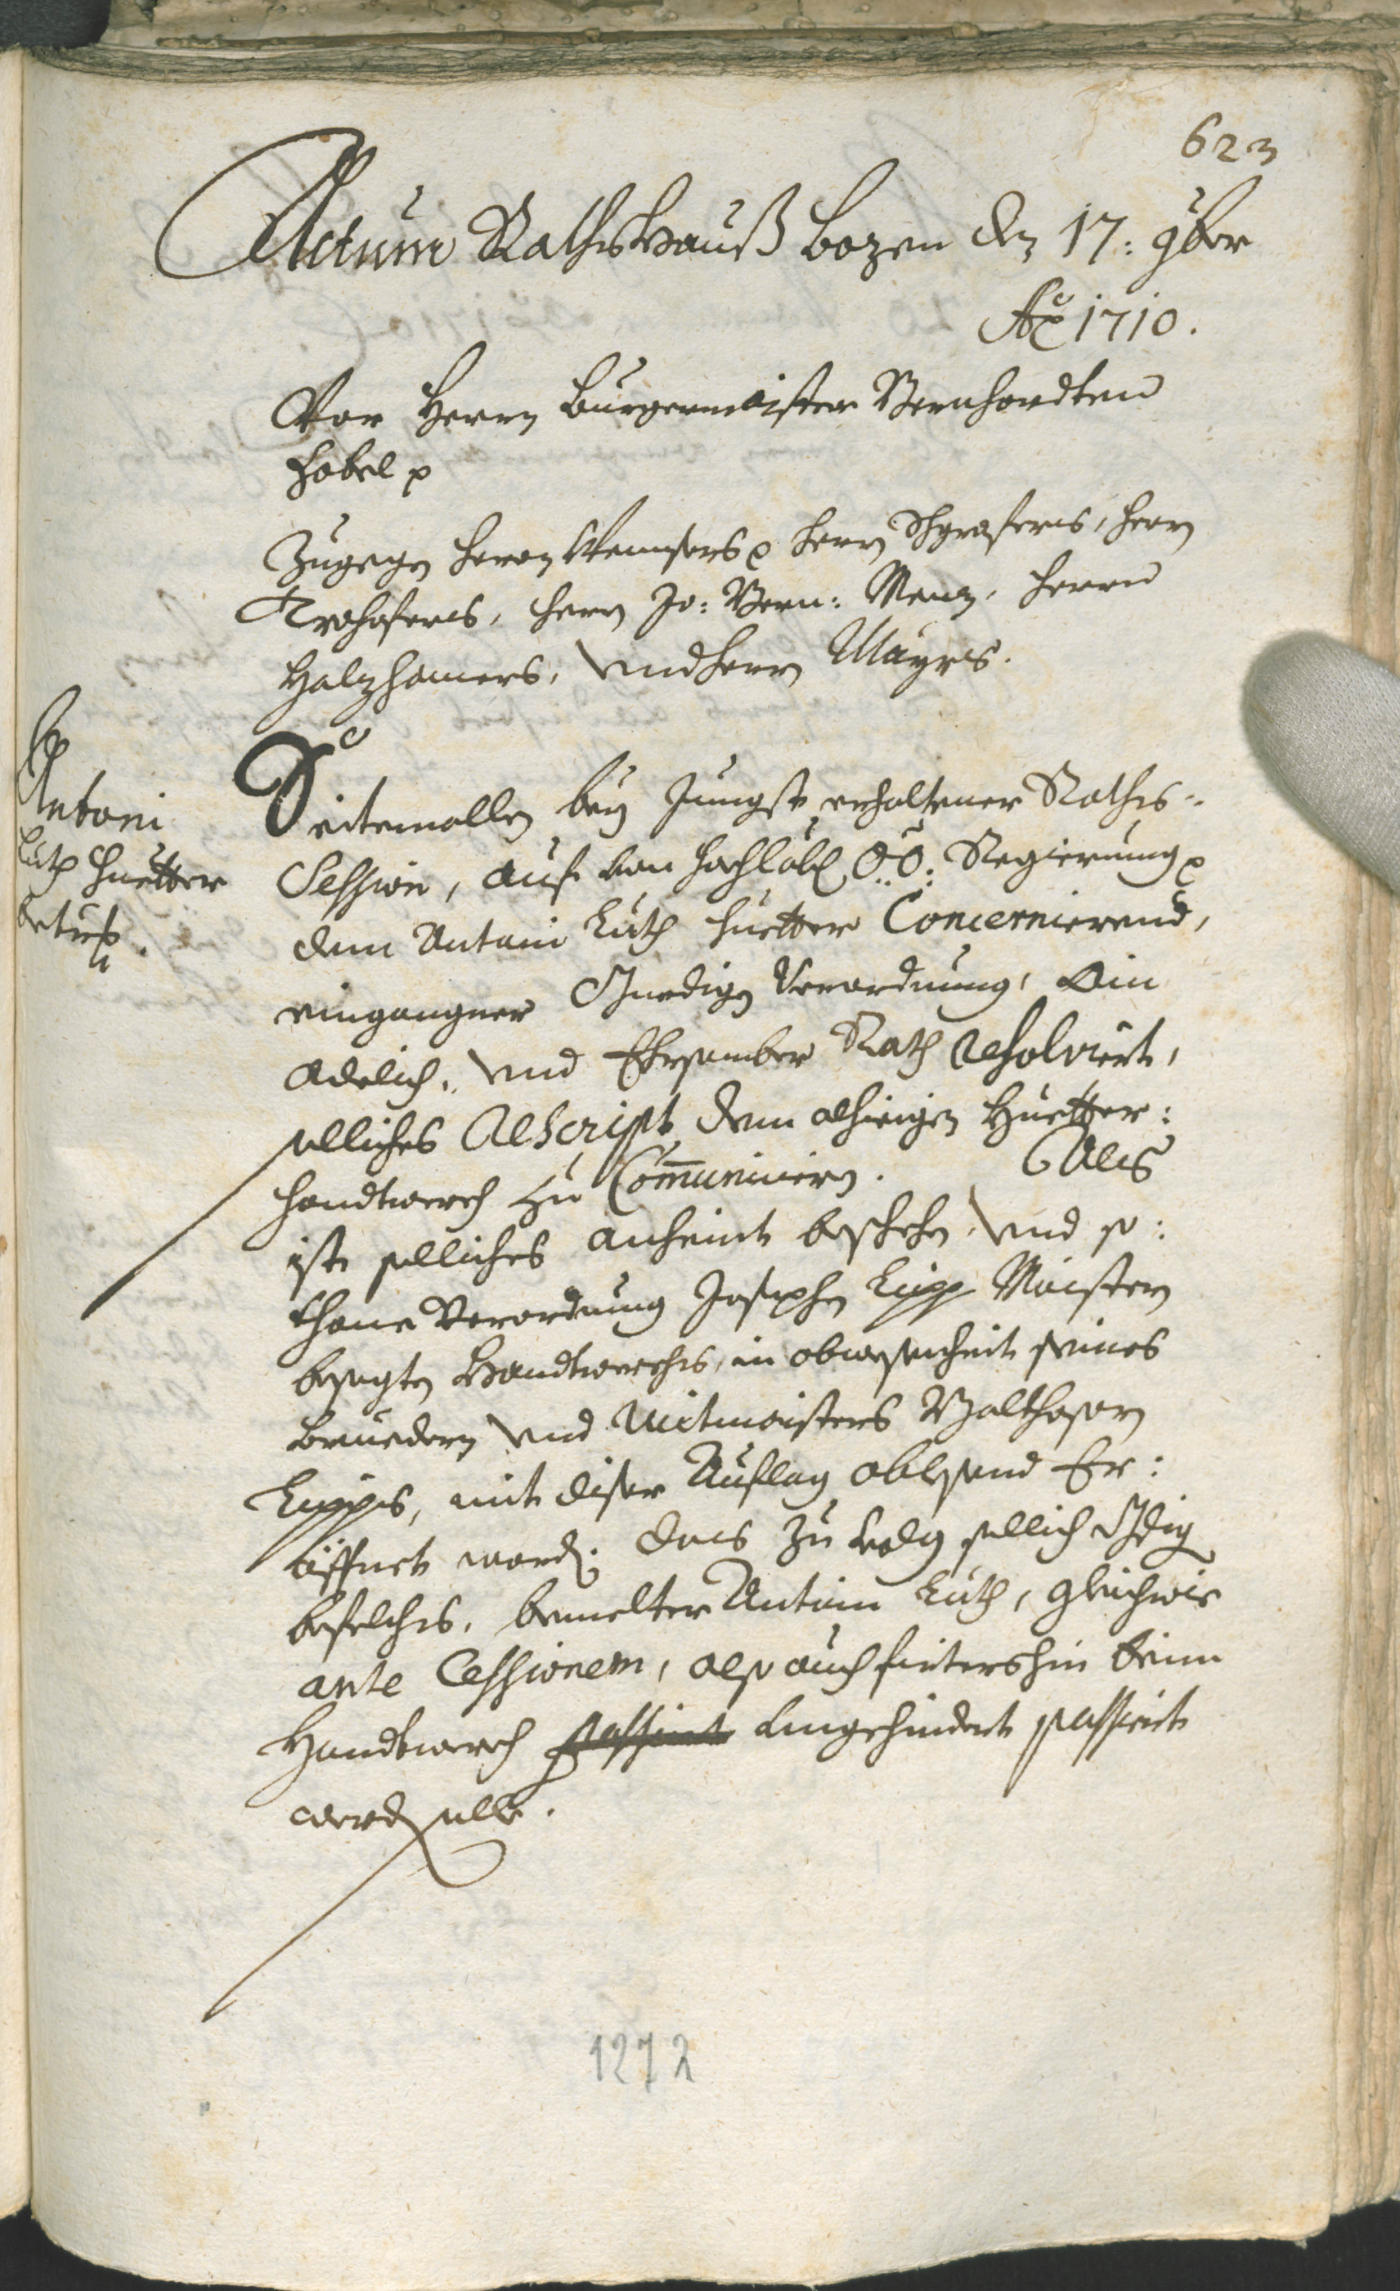 623
Actum Rathshauß Bozen den 17: 9ber
Ao 1710.
Vor Herrn Burgermaister Bernhardten
Hobel p
Zugegen Herrn Wenserß p Herrn Herrn
Herrn Jo: Bern: Menz, Herrn
Holzhamers, und Herrn Mayrs.
Antoni
Luth Huetter
betref.
Seitemallen bey Jungst erhaltener Raths-
Session, auf von hochlobl O:Ö: Regierung p
dem Antoni Luth Huetter Concernierend,
eingangner Gnedigen Verordnung, Ein
Adelich: und Ehrsamber Rath resolviert,
solliches Rescript dem alhiesigen Huetter:
handtwerch zu Communiciern. Als
ist solliches anheint beschehen, und so:
thane Verordnung Josephen Lipp Maistern
besagten Handtwerchs, in abwesenheit seines
Bruedern und Mitmaisters Balthasarn
Lipps, mit diser Auflag ablesend Er:
öffnet worden: dass zu volg sollich Gdig
befelchs, bemelter Antoni Luth, gleichwie
ante Cessionem, also auch fürtershin beim
Handtwerch passiert ungehindert passiert
werden solle.
1272